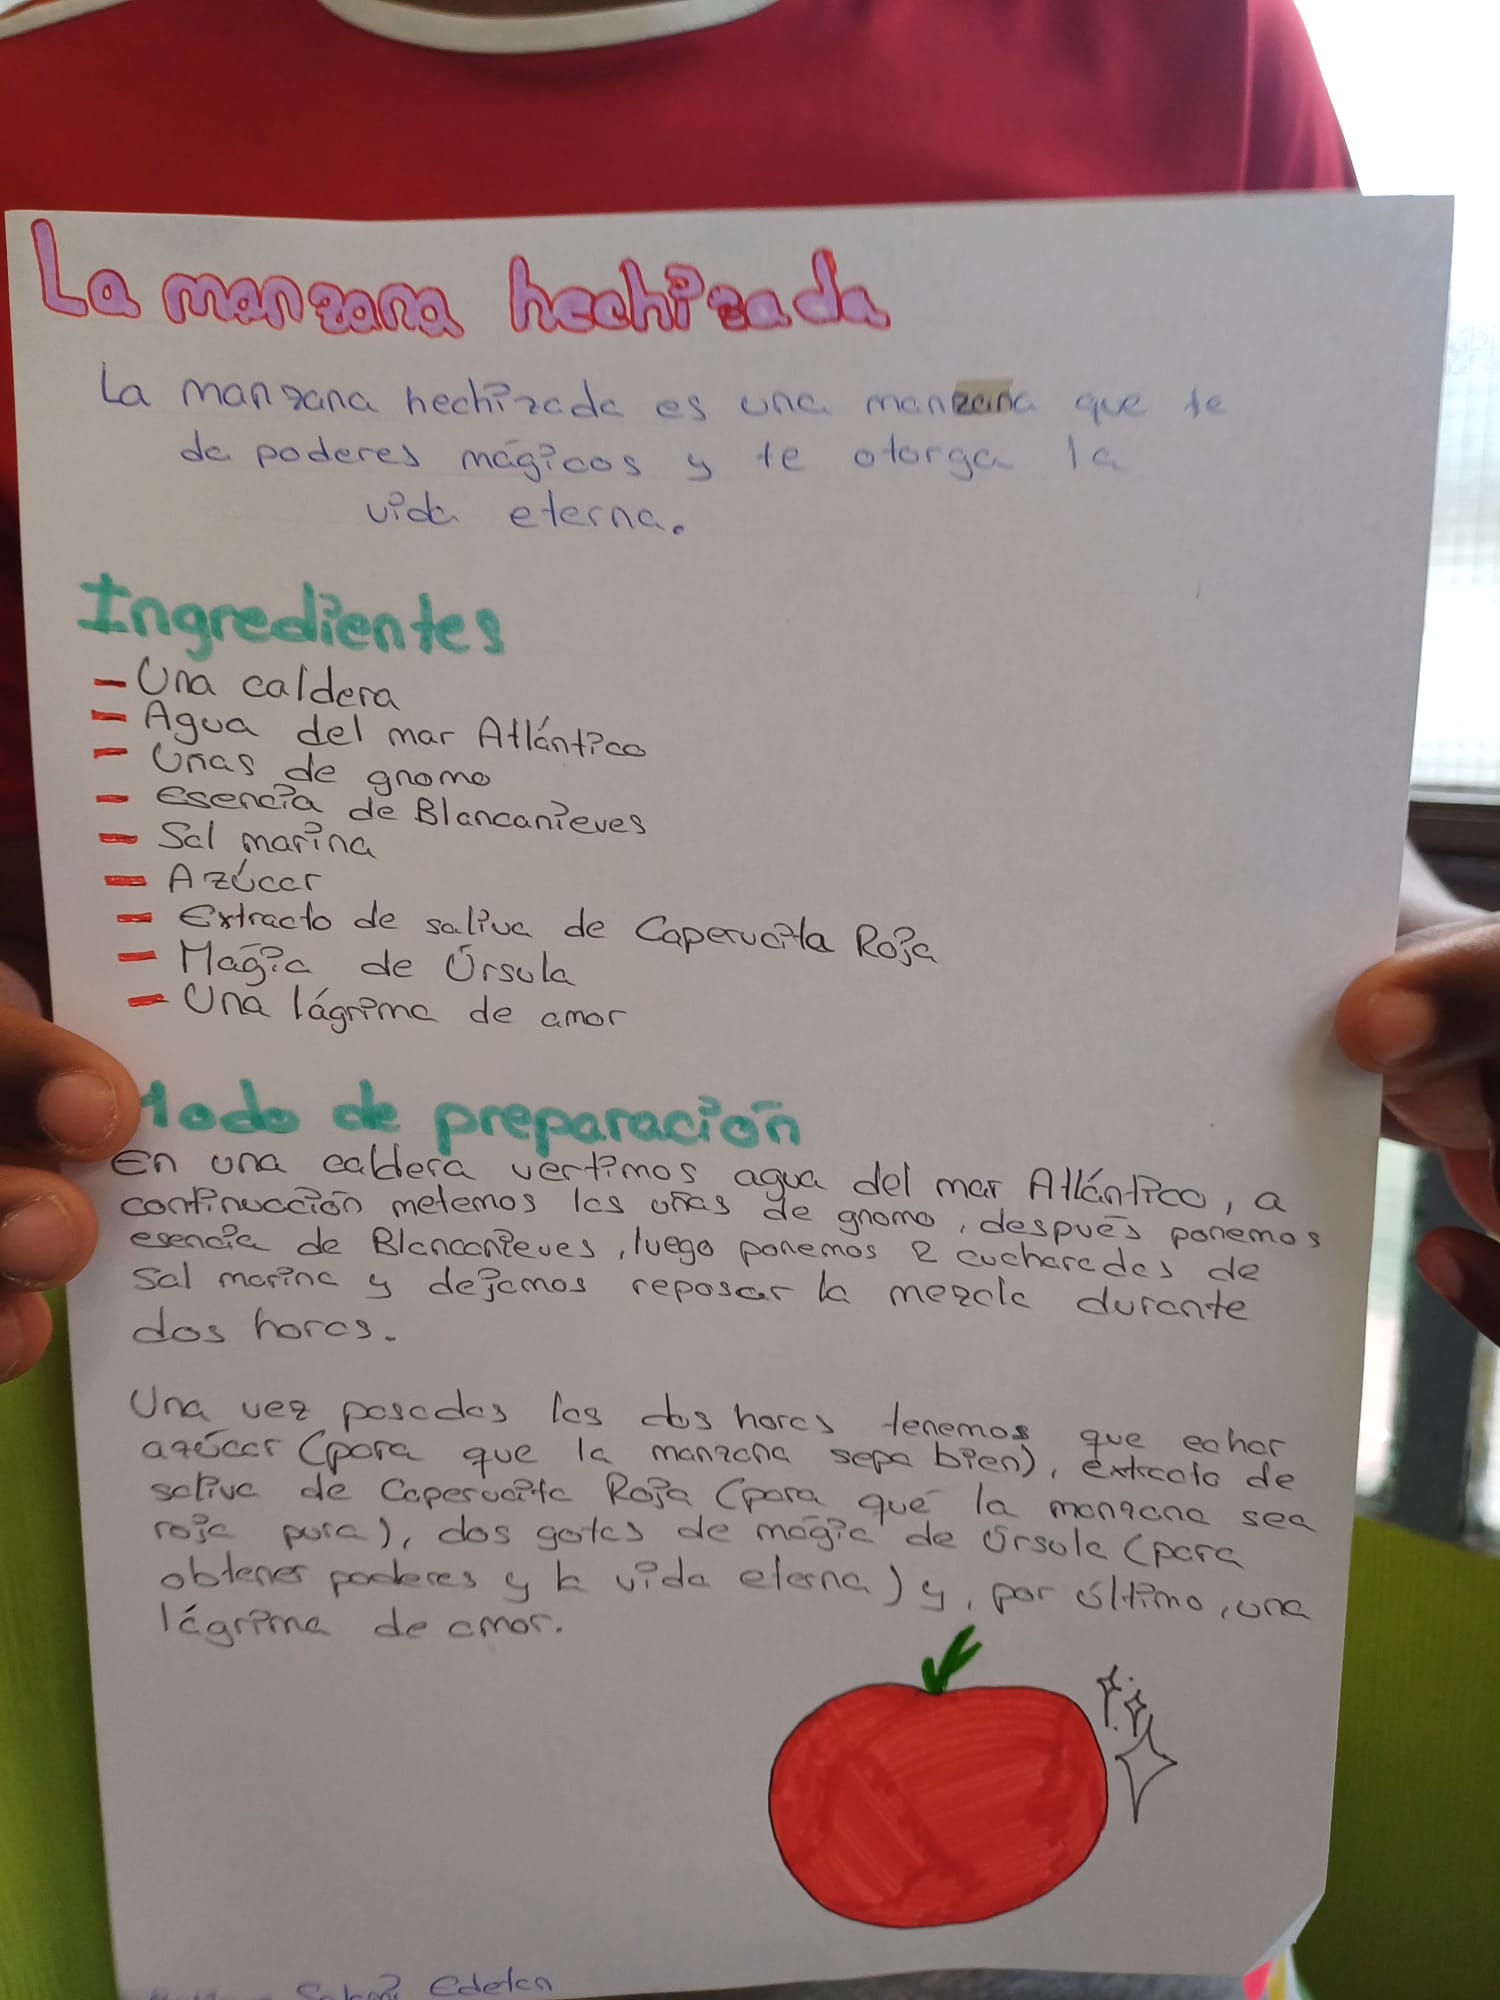 La manzana hechizada
La manzana hechizada es una manzana que te
da poderes mágicos y te otorga la
vida eterna.
Ingredientes
- Una caldera
- Agua del mar Atlántico
- Uñas de gnomo
- esencia de Blancanieves
- Sal marina
- Azúcar
- Extracto de saliva de Caperucita Roja
- Magia de Úrsula
- Una lágrima de amor
Modo de preparación
En una caldera vertimos agua del mar Atlántico, a
continuación metemos las uñas de gnomo, después ponemos
esencia de Blancanieves, luego ponemos 2 cucharadas de
Sal marina y dejamos reposar la mezcla durante
dos horas.
Una vez pasadas las dos horas tenemos que echar
azúcar (para que la manzana sepa bien), extracto de
saliva de Caperucita Roja (para que la manzana sea
roja pura), dos gotas de magia de Úrsula (para
obtener poderes y la vida eterna) y, por último, una
lágrima de amor.